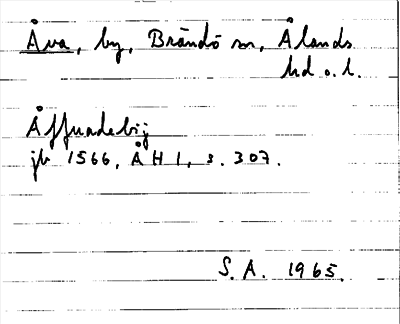 Åva, by, Brändö sn, Ålands
hd o. l.
Åffuadebij
jb 1566, ÅH 1, s. 307.
S. A. 1965.